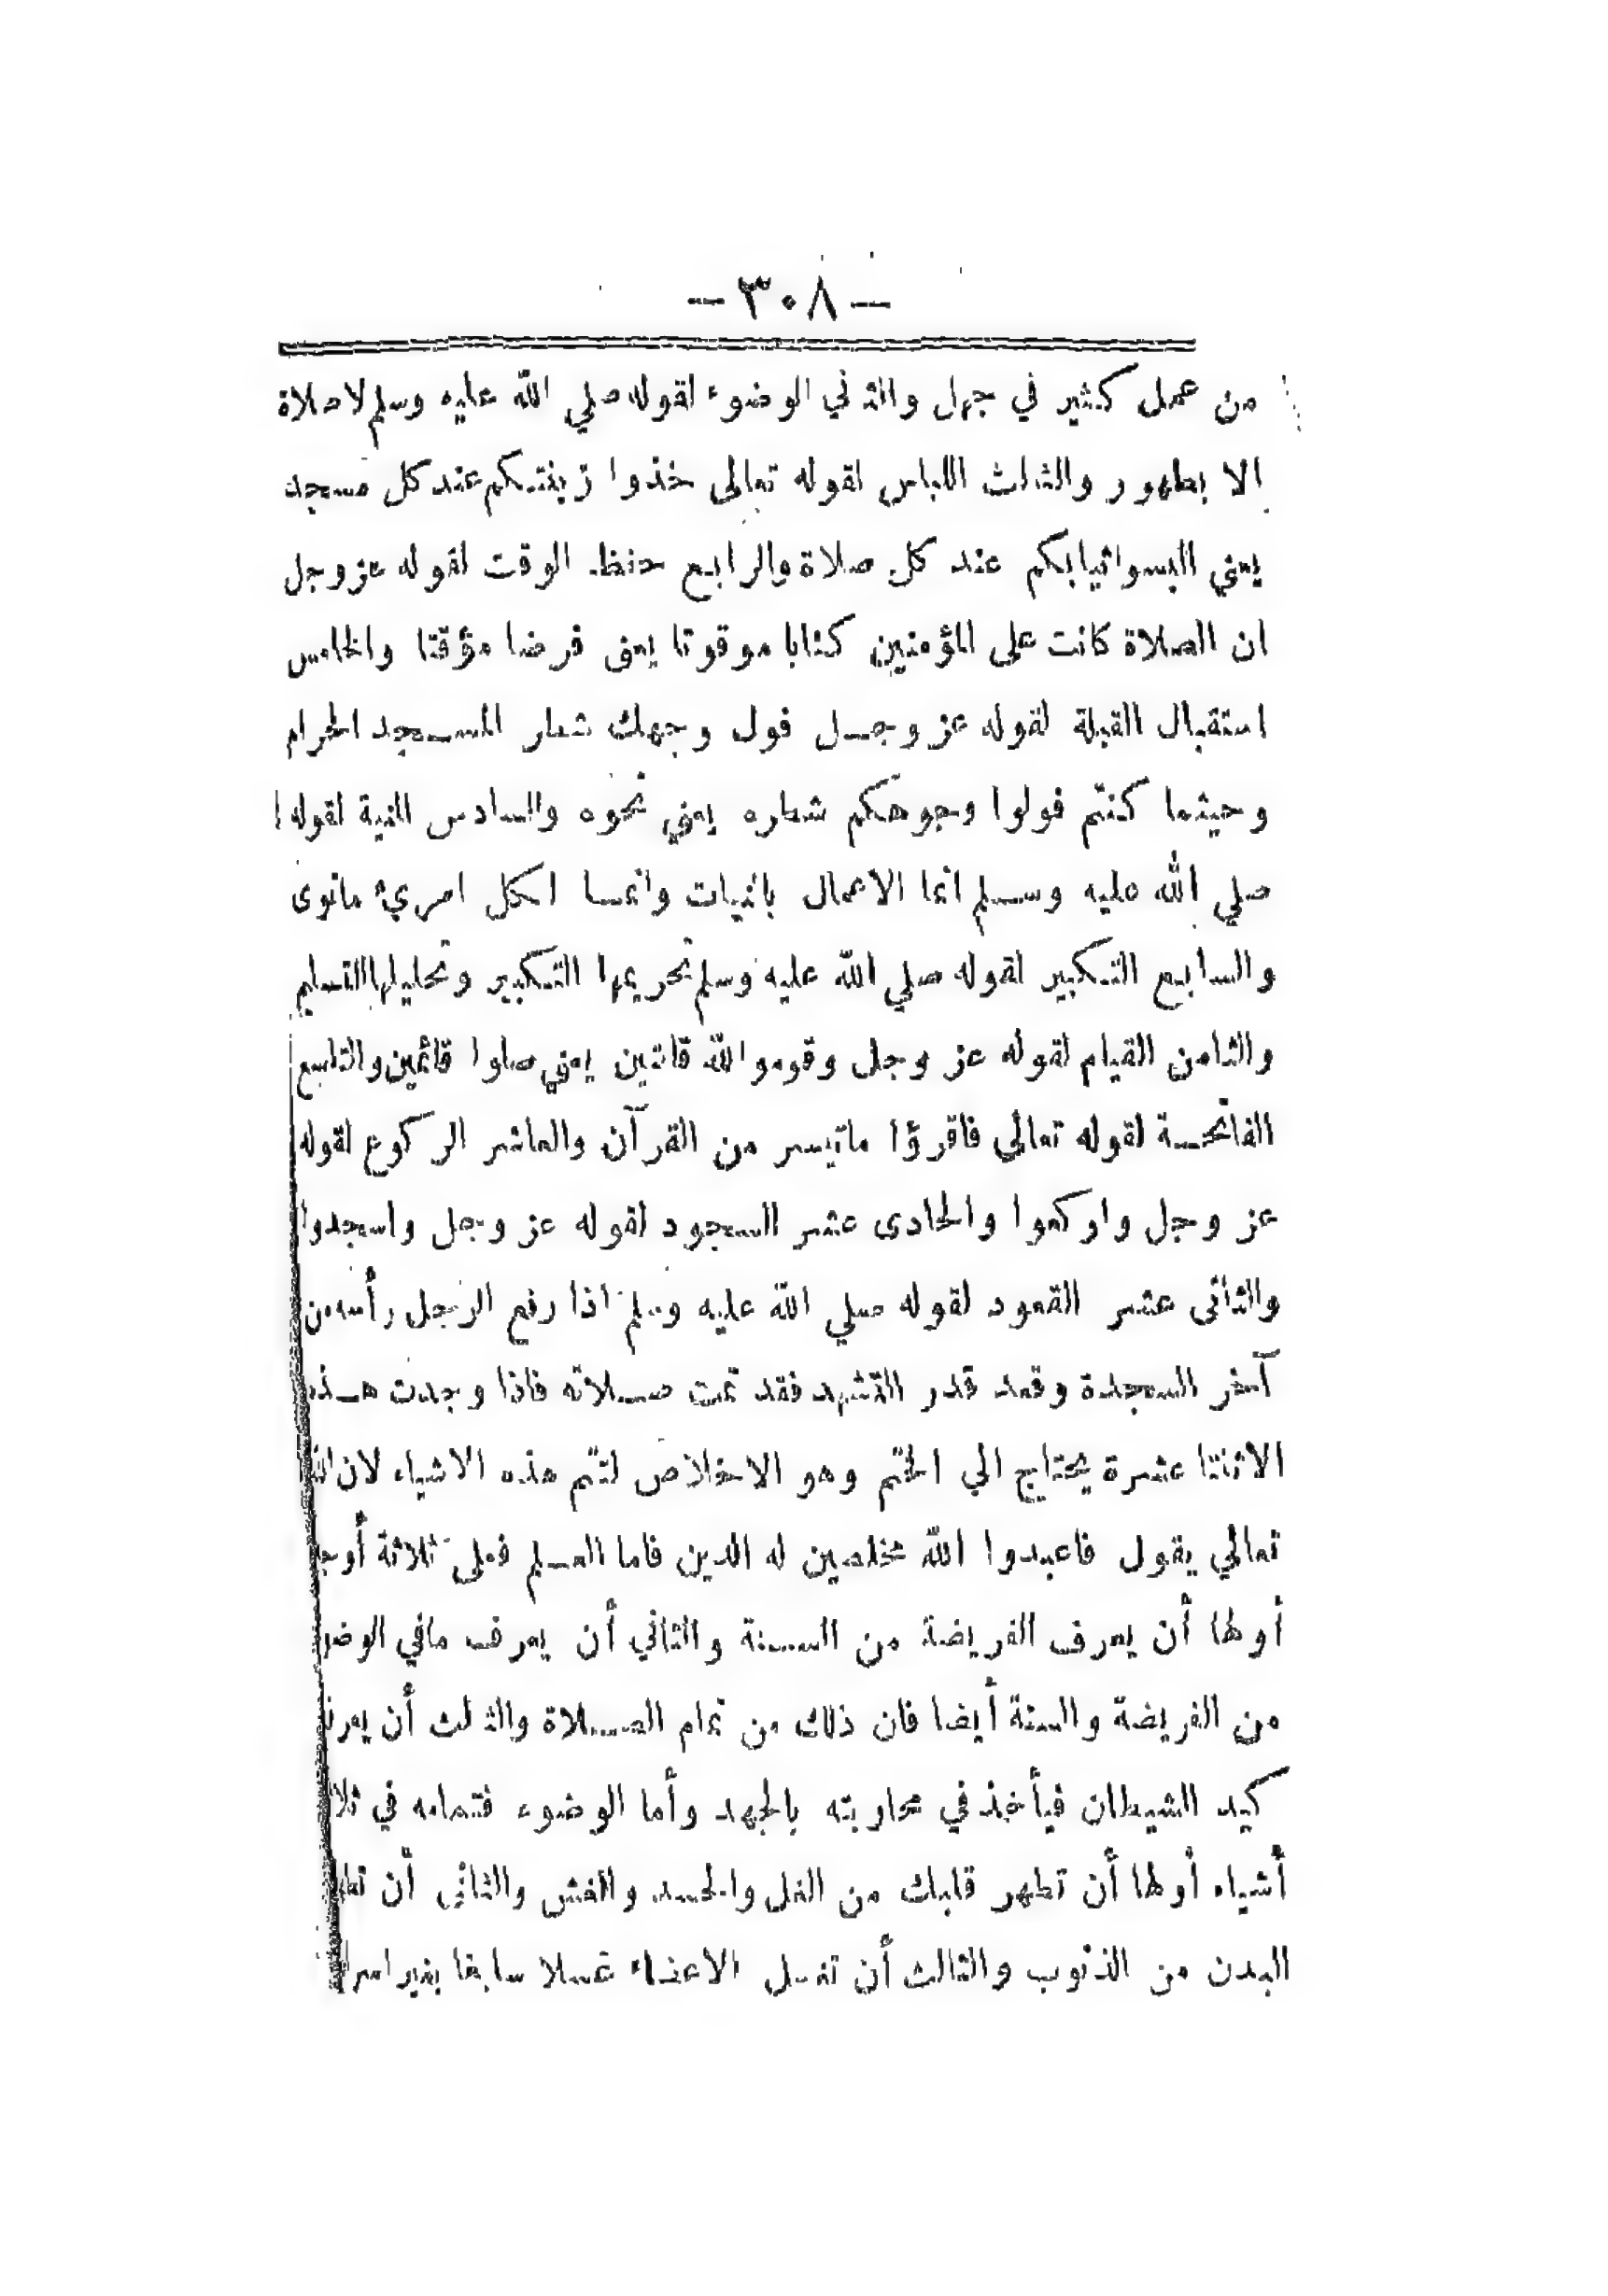 — ٣٠٨ —
من عمل كثير في جهل والثاني الوضوء لقوله صلي الله عليه وسلم لا صلاة
الا بطهور والثالث اللباس لقوله تعالى خذوا زينتكم عند كل مسجد
يعني البسوا ثيابكم عند كل صلاة والرابع حفظ الوقت لقوله عز وجل
ان الصلاة كانت على المؤمنين كتابا موقوتا يعنى فرضا مؤقتا والخامس
استقبال القبلة لقوله عز وجل فول وجهك شطر المسجد الحرام
وحيثما كنتم فولوا وجوهكم شطره يعني نحوه والسادس النية لقوله
صلي الله عليه وسلم انما الاعمال بالنيات وانما لكل امريء مانوى
والسابع التكبير لقوله صلي الله عليه وسلم تحريمها التكبير وتحليلها التسليم
والثامن القيام لقوله عز وجل وقوموا لله قانتين يعني صلوا قائمين والتاسع
الفاتحة لقوله تعالي فاقرؤا ماتيسر من القرآن والعاشر الركوع لقوله
عز وجل واركعوا والحادى عشر السجود لقوله عز وجل واسجدوا
والثانى عشر القعود لقوله صلي الله عليه وسلم اذا رفع الرجل رأسه من
آخر السجدة وقعد قدر التشهد فقد تمت صلاته فاذا وجدت هذه
الاثنتا عشرة يحتاج الي الختم وهو الاخلاص لتتم هذه الاشياء لان الله
تعالي يقول فاعبدوا الله مخلصين له الدين فاما العلم فعلى ثلاثة أوجه
أولها أن يعرف الفريضة من السنة والثاني أن يعرف مافي الوضوء
من الفريضة والسنة أيضا فان ذلك من تمام الصلاة والثالث أن يعرف
كيد الشيطان فيأخذ في محاربته بالجهد وأما الوضوء فتمامه في ثلاثة
أشياء أولها أن تطهر قلبك من الغل والحسد والغش والثانى أن تطهر
البدن من الذنوب والثالث أن تغسل الاعضاء غسلا سابغا بغير اسراف